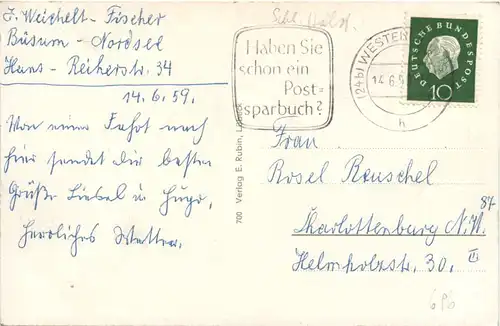 J. Weichelt-Fischer
Büsum-Nordsee
Hans-Reikerstr. 34
14.6.59.
Von einer Fahrt nach
hier sendet die besten
Grüße Liesel u Hugo.
Herrliches Wetter.
Schl. Holst.
Haben Sie
schon ein
Post-
sparbuch?
(24b) WESTEN
14.6.5
h
DEUTSCHE BUNDESPOST
10
700 Verlag E. Rubin,
Frau
Rosel Reuschel
87
Charlottenburg N.W.
Helmholzstr. 30. III